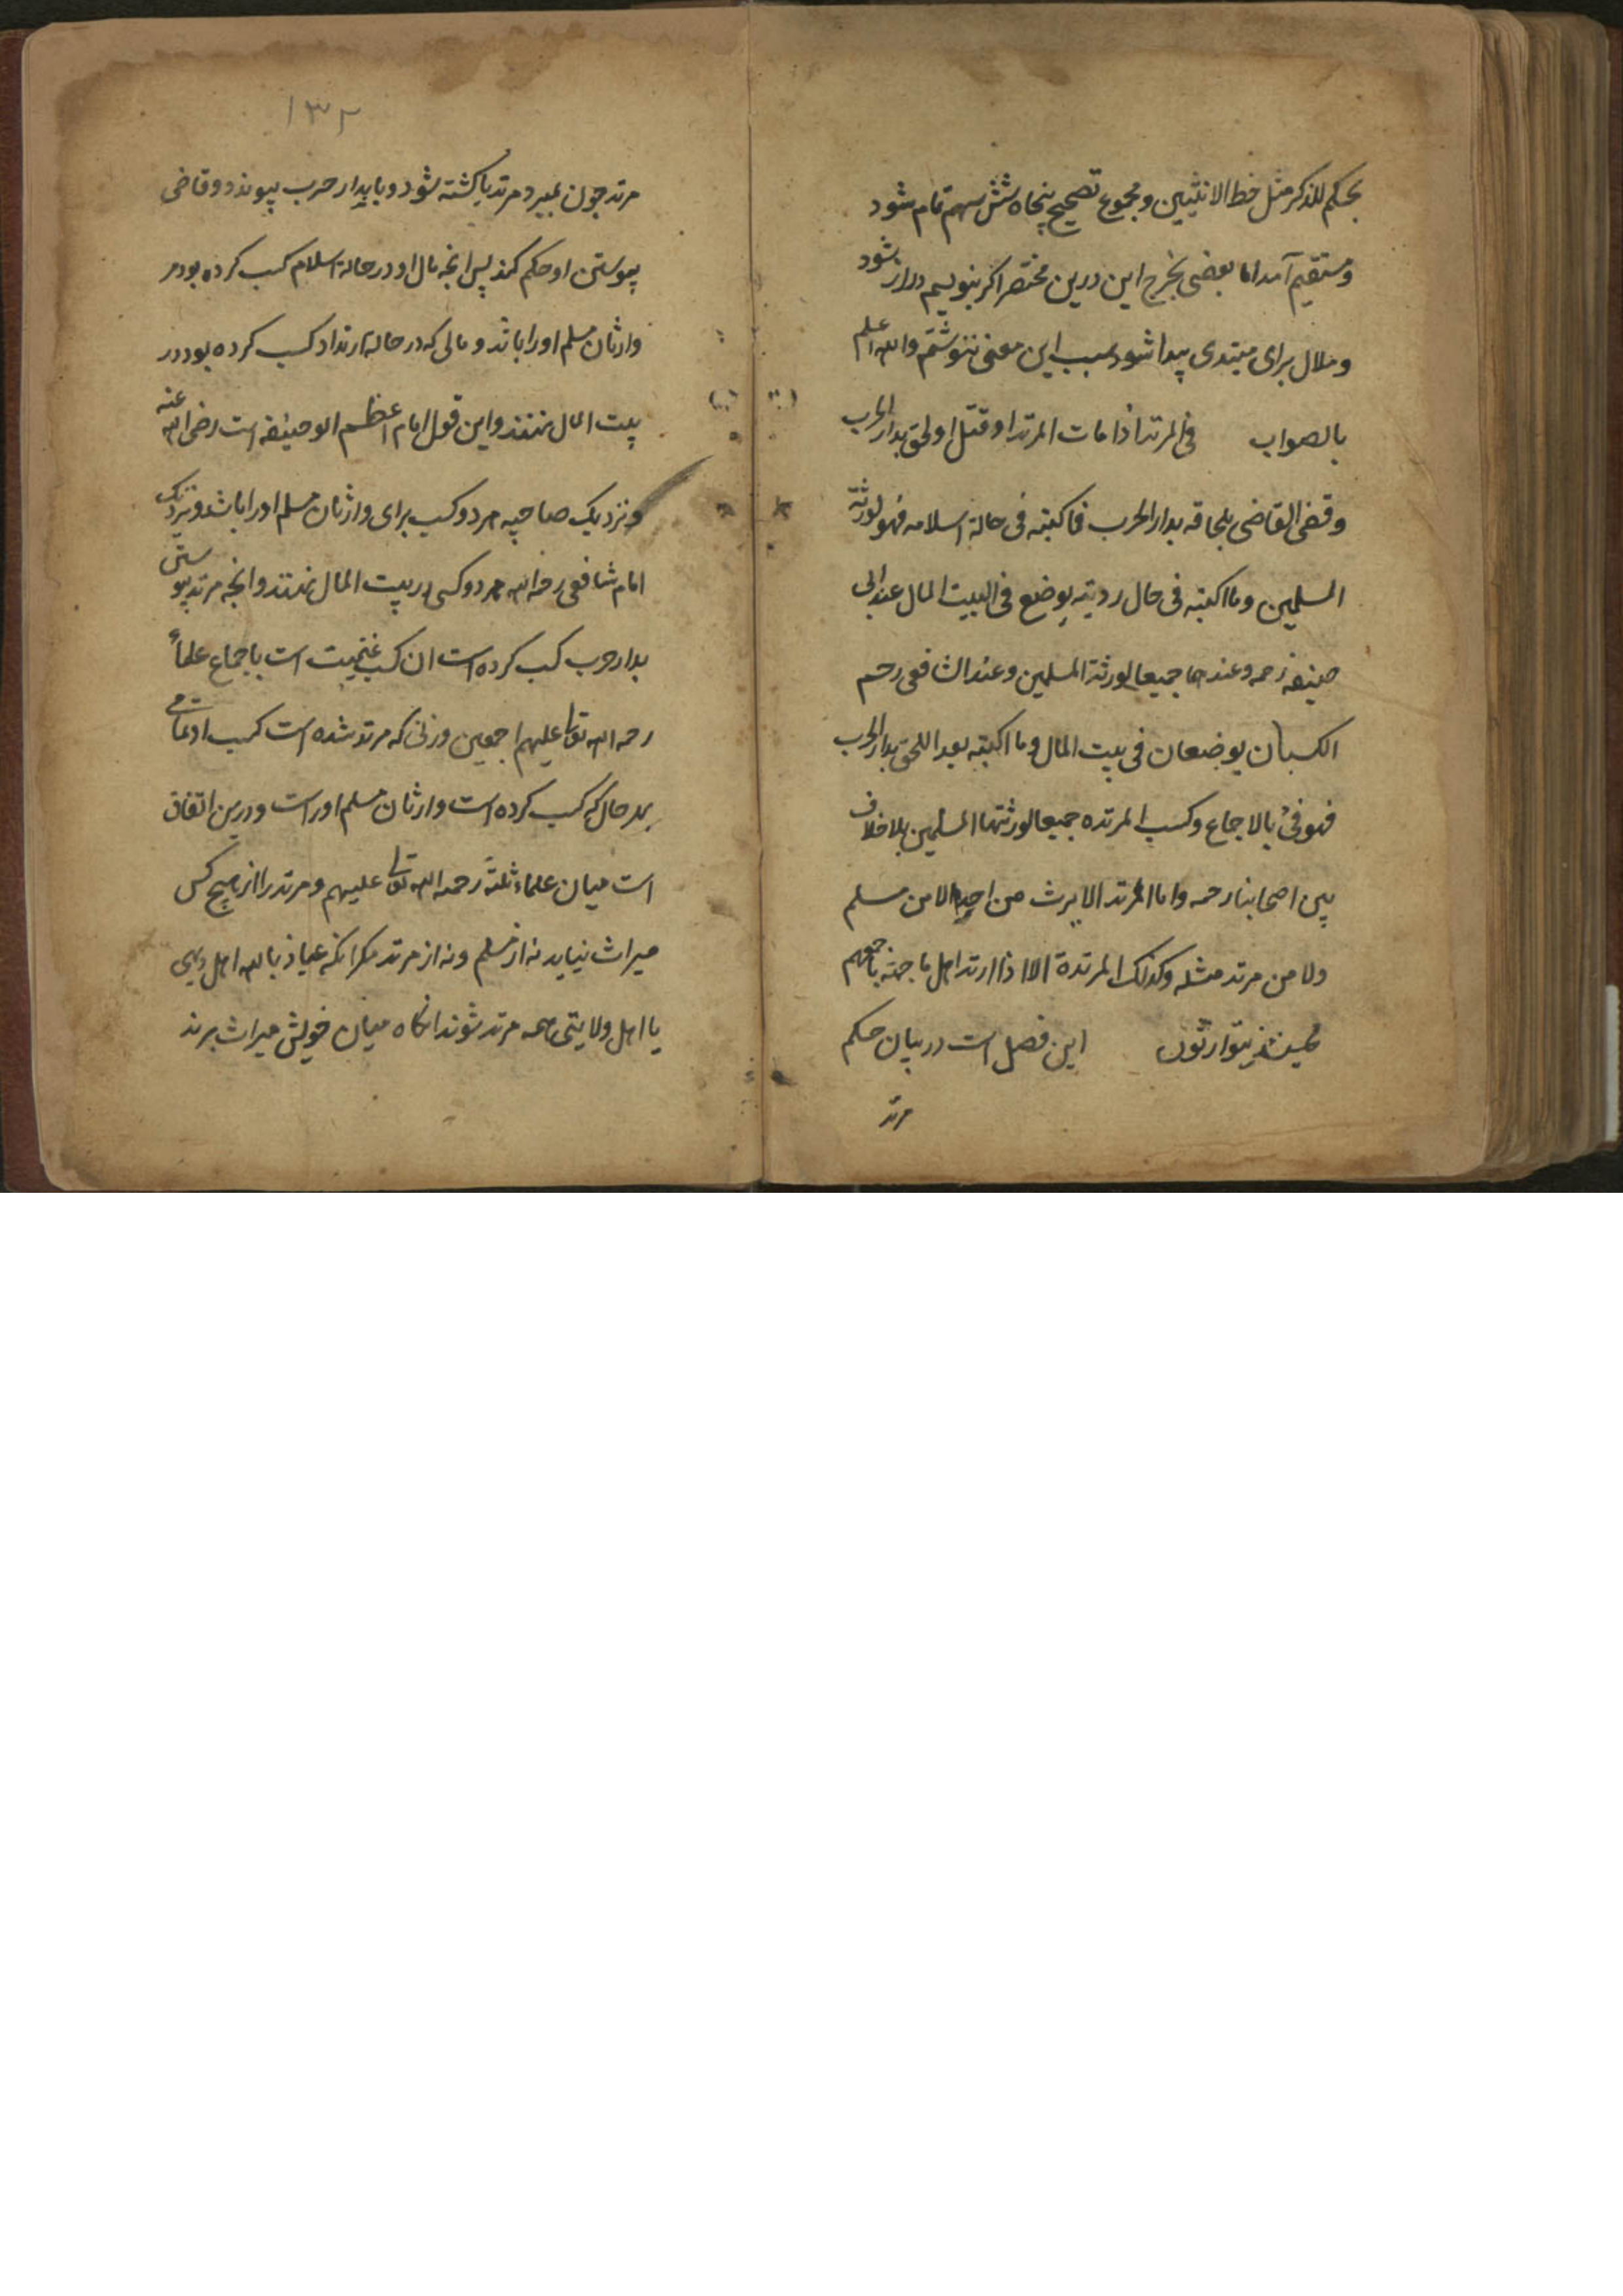 بحکم للذکر مثل حظ الانثیین و مجموع تصحیح پنجاه شش سهم تمام شود
و مستقیم آمد اما بعضی تخرج این درین مختصر اکر بنویسم دراز شود
و ملال برای مبتدی پیدا شود بسبب این معنی ننوشتم والله اعلم
بالصواب فی المرتد اذا مات المرتد او قتل او لحق بدار الحرب
و قضی القاضی بلحاقه بدار الحرب فما کتسبه فی حالة اسلامه فهو لورثته
المسلمین وما اکتسبه فی حال ردیته یوضع فی البیت المال عند ابی
حنیفه رحمه و عندهما جمیعا لورثة المسلمین و عند الشافعی رحم
الکسبان یوضعان فی بیت المال وما اکتسبه بعد اللحق بدار الحرب
فهو فیٔ بالاجماع و کسب المرتده جمیعا لورثتها المسلمین بلا خلاف
بین اصحابنا رحمه واما المرتد الا یرث من احد لا من مسلم
ولا من مرتد مثله وکذلک المرتدة الا اذا ارتد اهل ناحیته باجمعهم
فحینئذ یتوارثون این فصل است در بیان حکم
مرتد
۱۳۲
مرتد چون بمیرد مرتد یا کشته شود و یا بدار حرب پیوندد و قاضی
پیوستن او حکم کند پس انجه مال او در حالة اسلام کسب کرده بود مر
وارثان مسلم او را باشد و مالی که در حالة ارتداد کسب کرده بود در
بیت المال نهند و این قول امام اعظم ابو حنیفه است رضی الله عنه
و نزدیک صاحبیه هر دو کسب برای وارثان مسلم او را باشد و نزدیک
امام شافعی رحمه الله هر دو کسبی در بیت المال نهند و انجه مرتد پیوستن
بدار حرب کسب کرده است ان کسب غنیمت است باجماع علماء
رحمه الله تعالی علیهم اجمعین و زنی که مرتد شده است کسب او تمامی
بهر حال که کسب کرده است وارثان مسلم او راست و درین اتفاق
است میان علماء ثلثة رحمه الله تعالی علیهم و مرتد را از هیچ کس
میراث نیاید نه از مسلم و نه از مرتد مکر انکه عیاذ بالله اهل دیهی
یا اهل ولایتی همه مرتد شوند انکاه میان خویش میراث برند